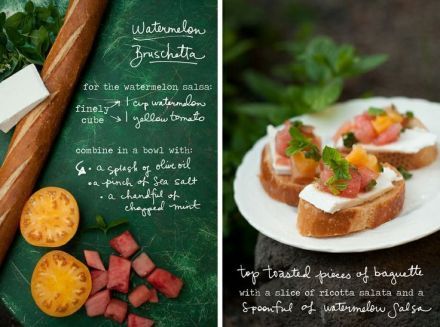 Watermelon
Bruschetta
for the watermelon salsa:
finely cube
1 cup watermelon
1 yellow tomato
combine in a bowl with:
• a splash of olive oil
• a pinch of sea salt
• a handful of
chopped mint
top toasted pieces of baguette
with a slice of ricotta salata and a
spoonful of watermelon salsa